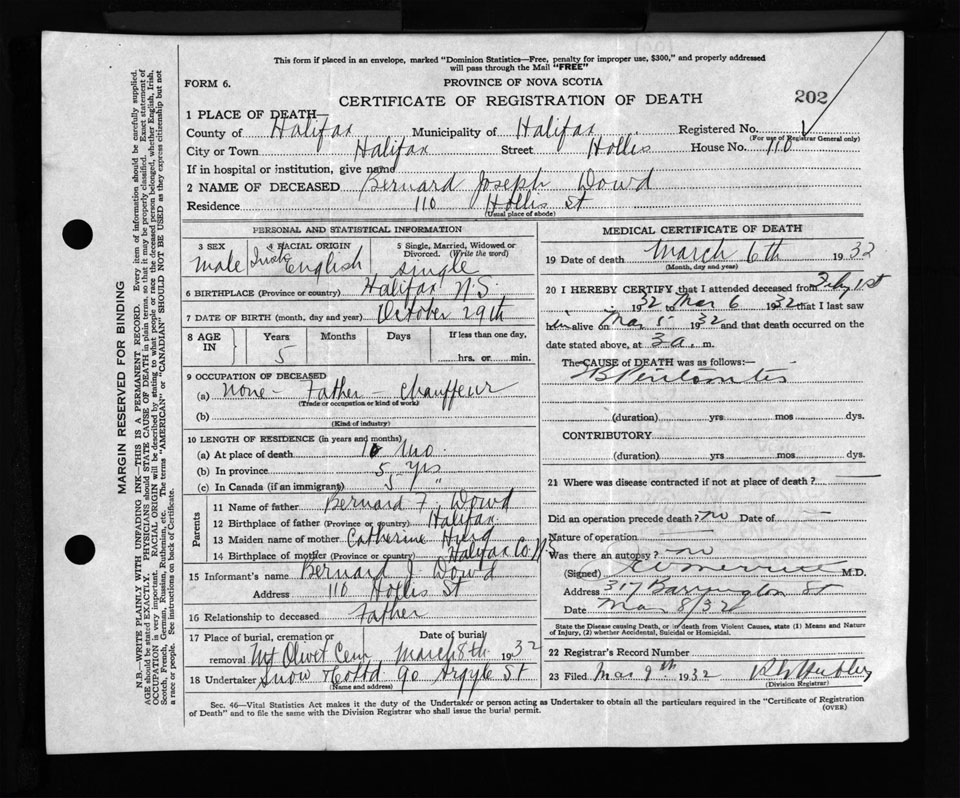 This form if placed in an envelope, marked "Dominion Statistics—Free, penalty for improper use, $300," and properly addressed
will pass through the Mail "FREE"
FORM 6.
PROVINCE OF NOVA SCOTIA
CERTIFICATE OF REGISTRATION OF DEATH
202
1 PLACE OF DEATH—
County of Halifax Municipality of Halifax Registered No.
(For use of Registrar General only)
City or Town Halifax Street Hollis House No. 110
If in hospital or institution, give name
2 NAME OF DECEASED Bernard Joseph Dowd
Residence 110 Hollis St
(Usual place of abode)
PERSONAL AND STATISTICAL INFORMATION
3 SEX
Male
4 RACIAL ORIGIN
Irish English
5 Single, Married, Widowed or
Divorced. (Write the word)
Single
6 BIRTHPLACE (Province or country) Halifax N.S.
7 DATE OF BIRTH (month, day and year) October 29th
8 AGE IN
Years Months Days If less than one day,
5
hrs. or min.
9 OCCUPATION OF DECEASED
(a) None - Father - Chauffeur
(Trade or occupation or kind of work)
(b)
(Kind of industry)
10 LENGTH OF RESIDENCE (in years and months)
(a) At place of death Mo.
(b) In province 5 yrs
(c) In Canada (if an immigrant) 5 "
Parents
11 Name of father Bernard F. Dowd
12 Birthplace of father (Province or country) Halifax
13 Maiden name of mother Catherine
14 Birthplace of mother (Province or country) Halifax Co.
15 Informant's name Bernard Dowd
Address 110 Hollis St
16 Relationship to deceased Father
17 Place of burial, cremation or Date of burial
removal Mt Olivet Cem March 8th 1932
18 Undertaker Snow & Co Ltd 90 Argyle St
(Name and address)
MEDICAL CERTIFICATE OF DEATH
19 Date of death March 6th 1932
(Month, day and year)
20 I HEREBY CERTIFY, that I attended deceased from Feby 1st
1932 to Mar 6 1932 that I last saw
him alive on Mar 1932 and that death occurred on the
date stated above, at 3 a. m.
The CAUSE of DEATH was as follows:—
Peritonitis
(duration) yrs mos dys.
CONTRIBUTORY
(duration) yrs. mos. dys.
21 Where was disease contracted if not at place of death?
Did an operation precede death? no Date of
Nature of operation
Was there an autopsy? no
(Signed) Merritt M.D.
Address 317 Barrington St
Date Mar 8/32
State the Disease causing Death, or in death from Violent Causes, state (1) Means and Nature
of Injury, (2) whether Accidental, Suicidal or Homicidal.
22 Registrar's Record Number
23 Filed Mar 9th 1932
(Division Registrar)
Sec. 46—Vital Statistics Act makes it the duty of the Undertaker or person acting as Undertaker to obtain all the particulars required in the "Certificate of Registration
of Death" and to file the same with the Division Registrar who shall issue the burial permit.
(OVER)
MARGIN RESERVED FOR BINDING
N.B.—WRITE PLAINLY WITH UNFADING INK—THIS IS A PERMANENT RECORD. Every item of information should be carefully supplied.
AGE should be stated EXACTLY. PHYSICIANS should STATE CAUSE OF DEATH in plain terms, so that it may be properly classified. Exact statement of
OCCUPATION is very important. RACIAL ORIGIN will be described by stating to what people or race the deceased person belonged, whether English, Irish,
Scotch, French, German, Russian, Ruthenian, etc. The terms "AMERICAN" or "CANADIAN" SHOULD NOT BE USED as they express citizenship but not
a race or people. See instructions on back of Certificate.